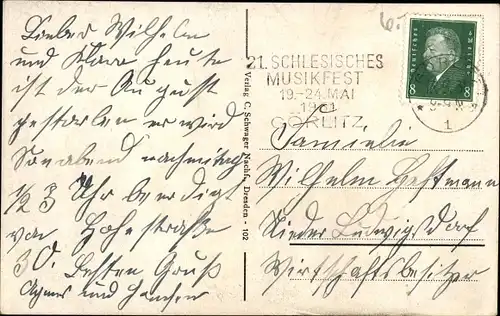 Lieber Wilhelm
und Klara heute
ist der August
gestorben er wird
Sonabend nachmitag
1/2 3 Uhr beerdigt
von Hohestraße
30. Besten Gruß
Agnes und
Verlag C. Schwager Nachf., Dresden - 102
21. SCHLESISCHES
MUSIKFEST
19.-24. MAI
1931
GÖRLITZ
Deutsches Reich
8 8
1
Familie
Wilhelm Hoffmann
Nieder Ludwigsdorf
Wirtschaftsbesitzer